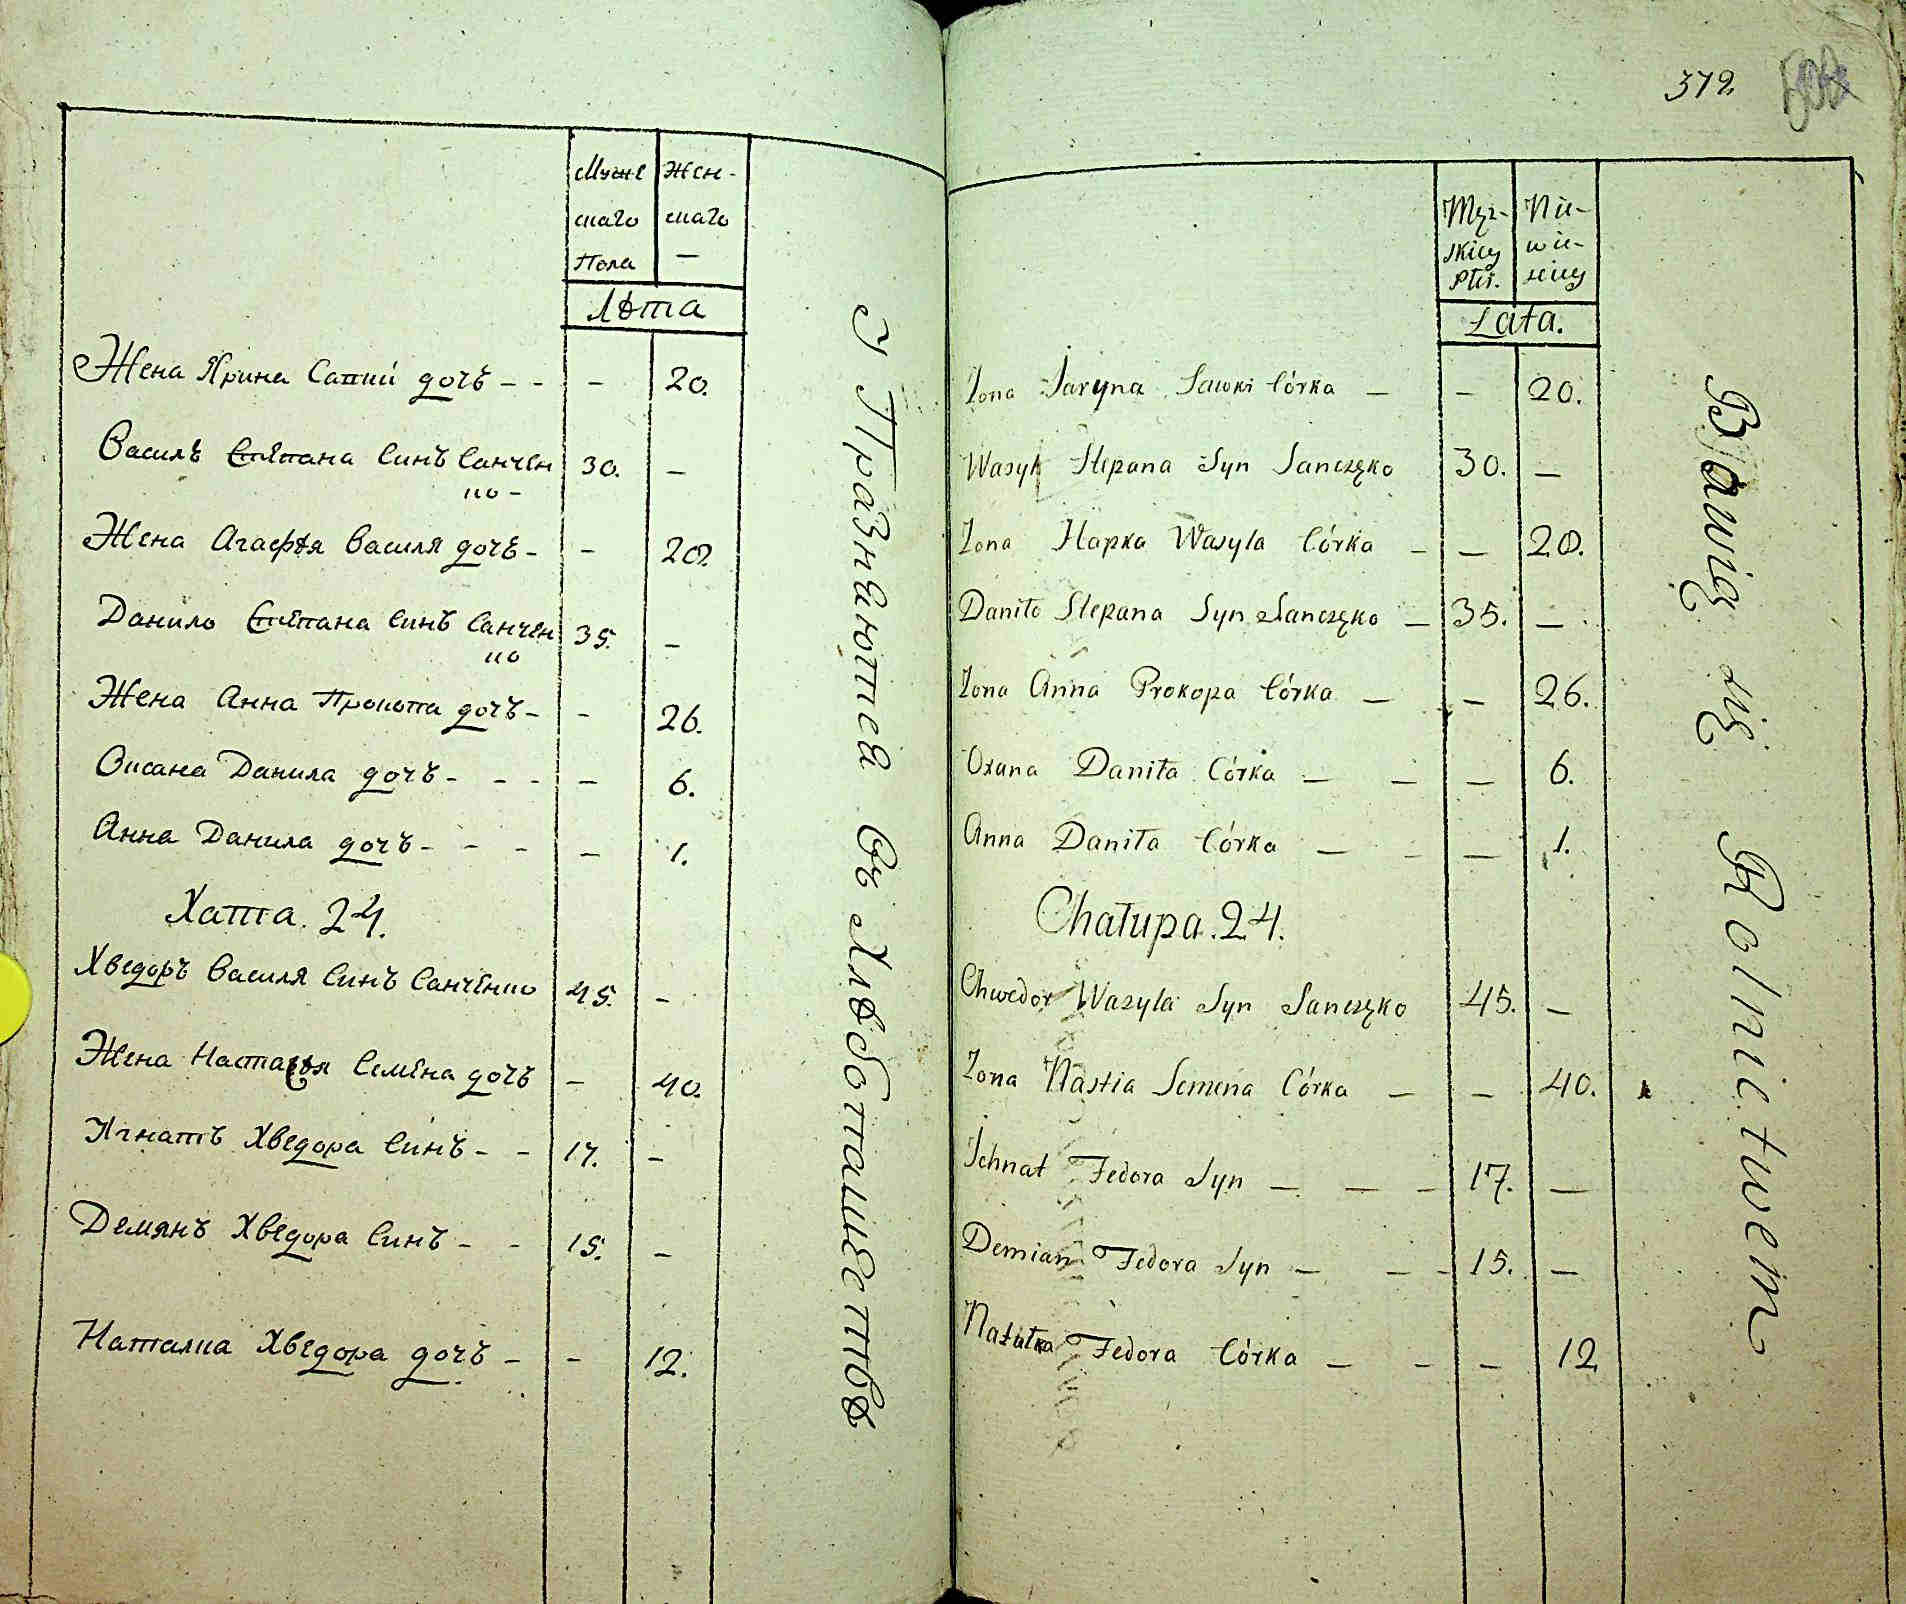 Муже
скаго
Пола
Жен-
скаго
—
Лѣта
Жена Ярина Сапки дочъ - - - 20.
Василъ Стѣпана Синъ Санчен 30. —
ко -
Жена Агафѣя Василя дочъ - - 20.
Данило Стѣпана Синъ Санчен 35. —
ко
Жена Анна Прокопа дочъ - - 26.
Оксана Данила дочъ - - - — 6.
Анна Данила дочъ - - - — 1.
Хата. 24.
Хведоръ Василя Синъ Санченко 45. —
Жена Настасѣя Семена дочъ — 40.
Игнатъ Хведора Синъ - - 17. —
Демянъ Хведора Синъ - - 15. —
Наталка Хведора дочъ - - 12.
У Празнюются въ Хлѣбопашествѣ
372
Męz-
skiey
Płci.
Nie-
wie-
sciey
Lata.
Zona Jaryna Sawki Córka — — 20.
Wasyl Stepana Syn Sanczęko 30. —
Zona Hapka Wasyla Córka — — 20.
Daniło Stepana Syn Sanczęko — 35. —
Zona Anna Prokopa Córka — — 26.
Oxana Daniła Córka — — — 6.
Anna Daniła Córka — — — 1.
Chałupa. 24.
Chwedor Wasyla Syn Sanczęko 45. —
Zona Nastia Semena Córka — — 40.
Ichnat Fedora Syn — — — 17. —
Demian Fedora Syn — — - 15. —
Natałka Fedora Córka — — — 12
Bawią się Rolnictwem